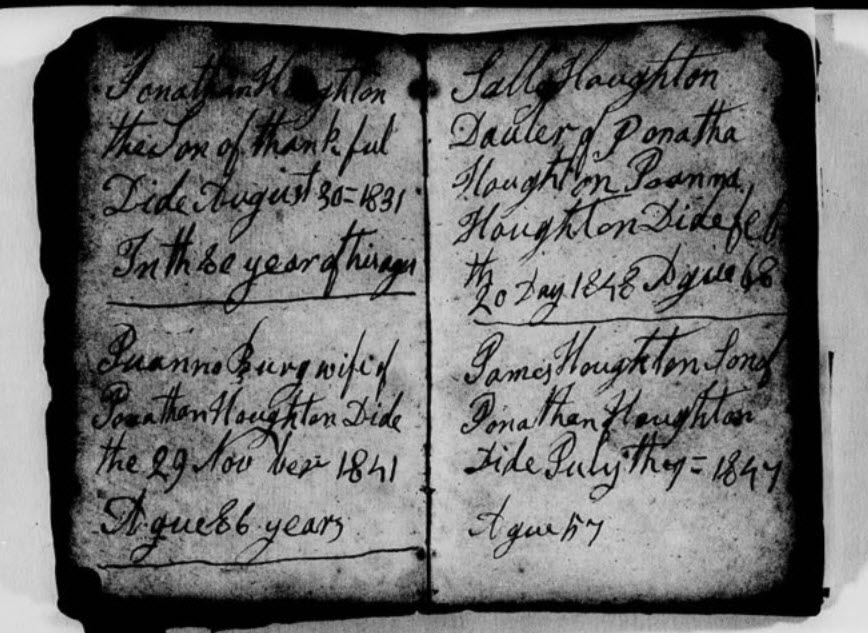 Jonathan Houghton
the Son of thankful
Dide August 30=1831
In th 80 year of his age
Juanna Burg wife of
Jonathan Houghton Dide
the 29 Nov ber = 1841
Ague 86 years
Sally Houghton
Dauter of Jonatha
Houghton Joanna
Houghton Dide feb
th
20 Day 1848 Ague 68
James Houghton Son of
Jonathan Houghton
Dide July th 7 = 1847
Ague 57